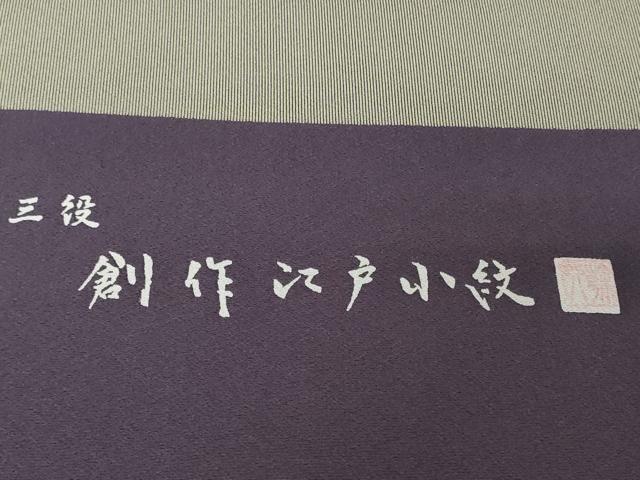 三役
創作江戸小紋